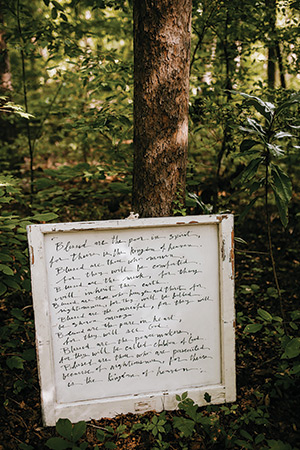 Blessed are the poor in spirit,
for theirs is the kingdom of heaven.
Blessed are those who mourn,
for they will be comforted.
Blessed are the meek, for they
will inherit the earth.
Blessed are those who hunger and thirst for
righteousness, for they will be filled.
Blessed are the merciful, for they will
be shown mercy.
Blessed are the pure in heart,
for they will see God.
Blessed are the peacemakers,
for they will be called children of God.
Blessed are those who are persecuted
because of righteousness, for theirs
is the kingdom of heaven.